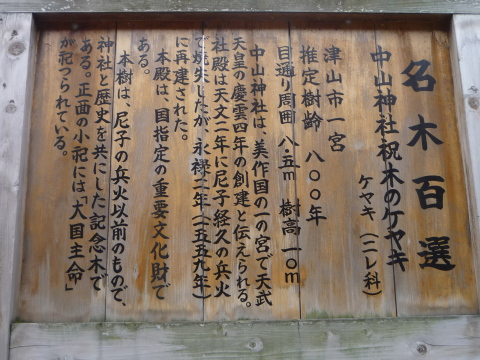 名木百選
中山神社祝木のケヤキ
ケヤキ（ニレ科）
津山市一宮
推定樹齢 八〇〇年
目通り周囲 八・五m 樹高 一〇m
中山神社は、美作国の一の宮で天武
天皇の慶雲四年の創建と伝えられる。
社殿は天文二年に尼子経久の兵火
で焼失したが、永禄二年（一五五九年）
に再建された。
本殿は、国指定の重要文化財で
ある。
本樹は、尼子の兵火以前のもので、
神社と歴史を共にした記念木で
ある。正西の小祀には「大国主命」
が祀つられている。